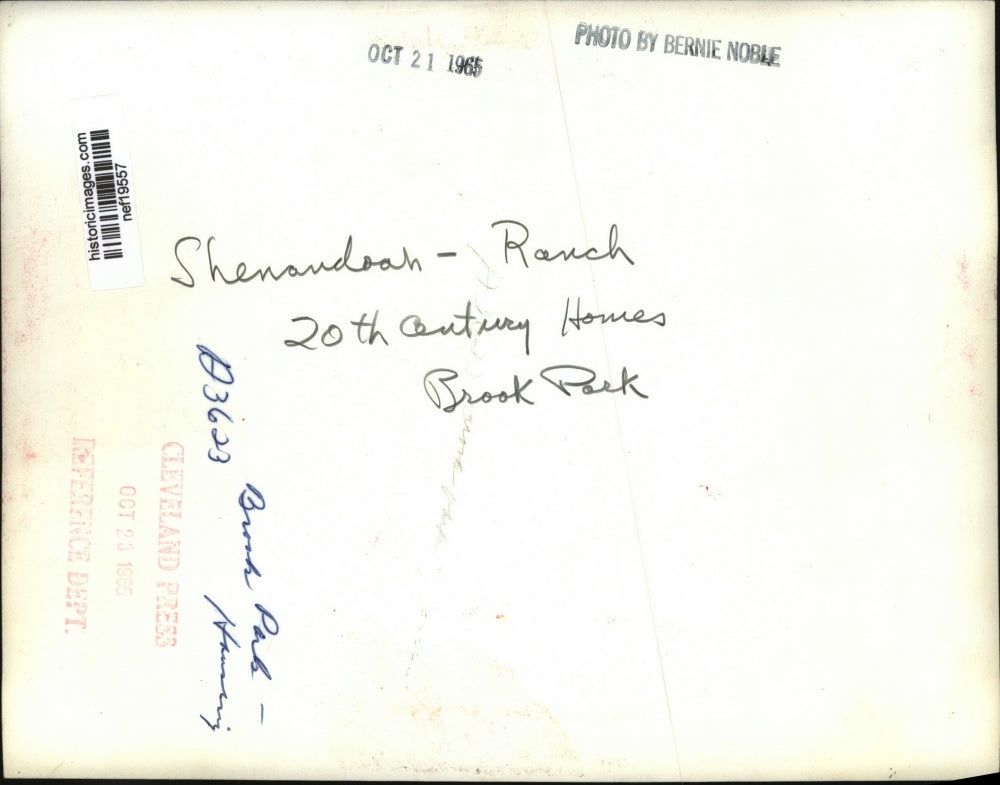 OCT 21 1965
PHOTO BY BERNIE NOBLE
historicimages.com
nef19557
Shenandoah - Ranch
20th Century Homes
Brook Park
D3623
Brook Park -
Housing
CLEVELAND PRESS
OCT 23 1965
REFERENCE DEPT.